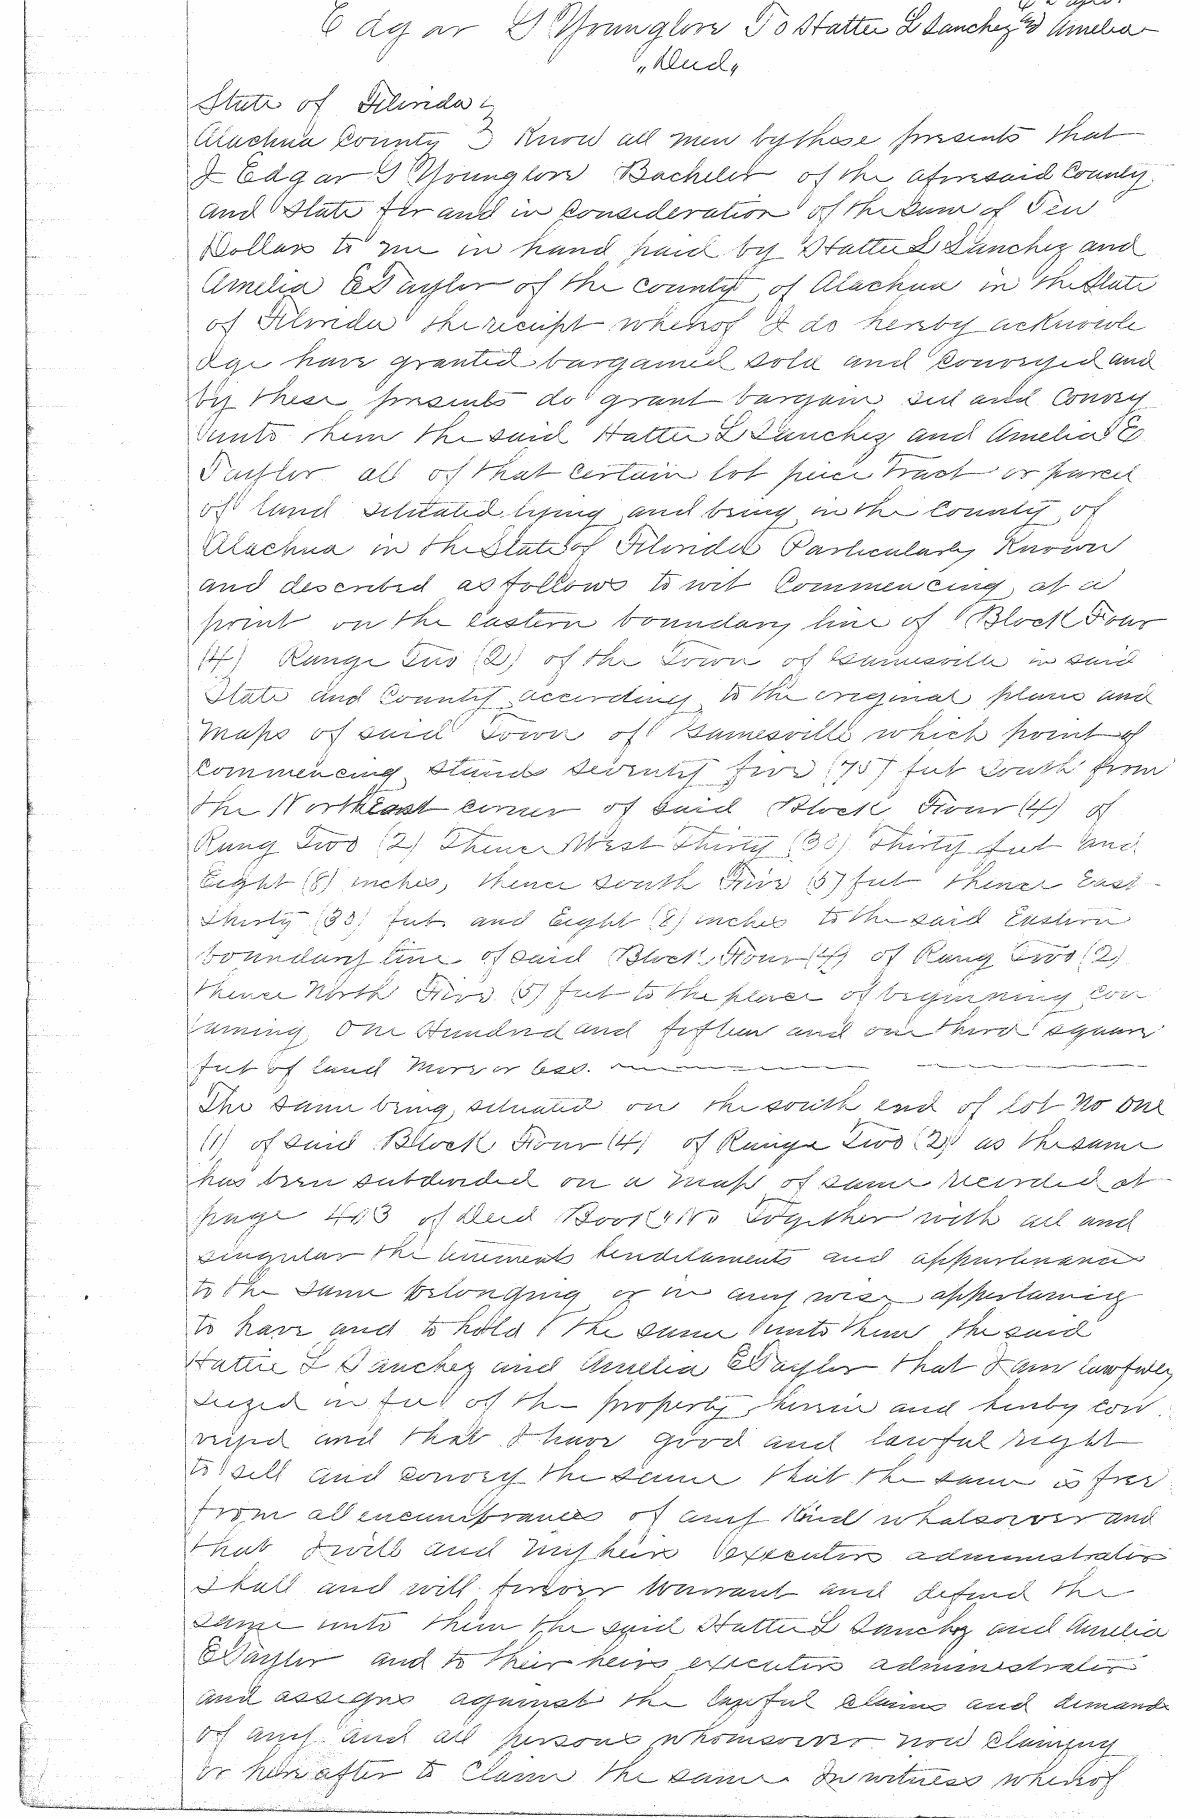 E Taylor
Edgar G Younglove To Hattie L Sanchez and Amelia
"Deed"
State of Florida
Alachua County } Know all men by these presents that
I Edgar G Younglove Bachelor of the aforesaid County
and State for and in Consideration of the Sum of Ten
Dollars to me in hand paid by Hattie L Sanchez and
Amelia E Taylor of the county of Alachua in the State
of Florida the receipt whereof I do hereby acknowle
dge have granted bargained sold and Conveyed and
by these presents do grant bargain sell and Convey
unto them the said Hattie L Sanchez and Amelia E
Taylor all of that certain lot peice Tract or parcel
of land situated lying and being in the County of
Alachua in the State of Florida Particularly Known
and described as follows to wit Commencing at a
point on the eastern boundary line of Block Four
(4) Range Two (2) of the Town of Gainesville in said
State and County according to the original plans and
Maps of said Town of Gainesville which point of
Commencing stands seventy five (75) feet South from
the North East corner of said Block Four (4) of
Rang Two (2) Thence West Thirty (30) Thirty feet and
Eight (8) inches, thence south Five (5) feet thence East
Thirty (30) feet and Eight (8) inches to the said Eastern
boundary line of said Block Four (4) of Rang Two (2)
thence North Five (5) feet to the place of beginning con
taining One Hundred and fifteen and one third square
feet of land More or less.
The same being situated on the south end of lot No One
(1) of said Block Four (4) of Range Two (2) as the same
has been subdivided on a map of same recorded at
page 403 of Deed Book Together with all and
singular the tenements and appurtenances
to the same belonging or in any wise appertaining
to have and to hold the same unto them the said
Hattie L Sanchez and Amelia E Taylor that I am lawfully
seized in fee of the property herein and hereby con
veyed and that I have good and lawful right
to sell and convey the same that the same is free
from all encumbrances of any Kind whatsoever and
that I will and my heirs executors administrators
shall and will forever warrant and defend the
same unto them the said Hattie L Sanchez and Amelia
E Taylor and to their heirs executors administrators
and assigns against the lawful claims and demands
of any and all persons whomsoever now claiming
or here after to Claim the same In witness whereof